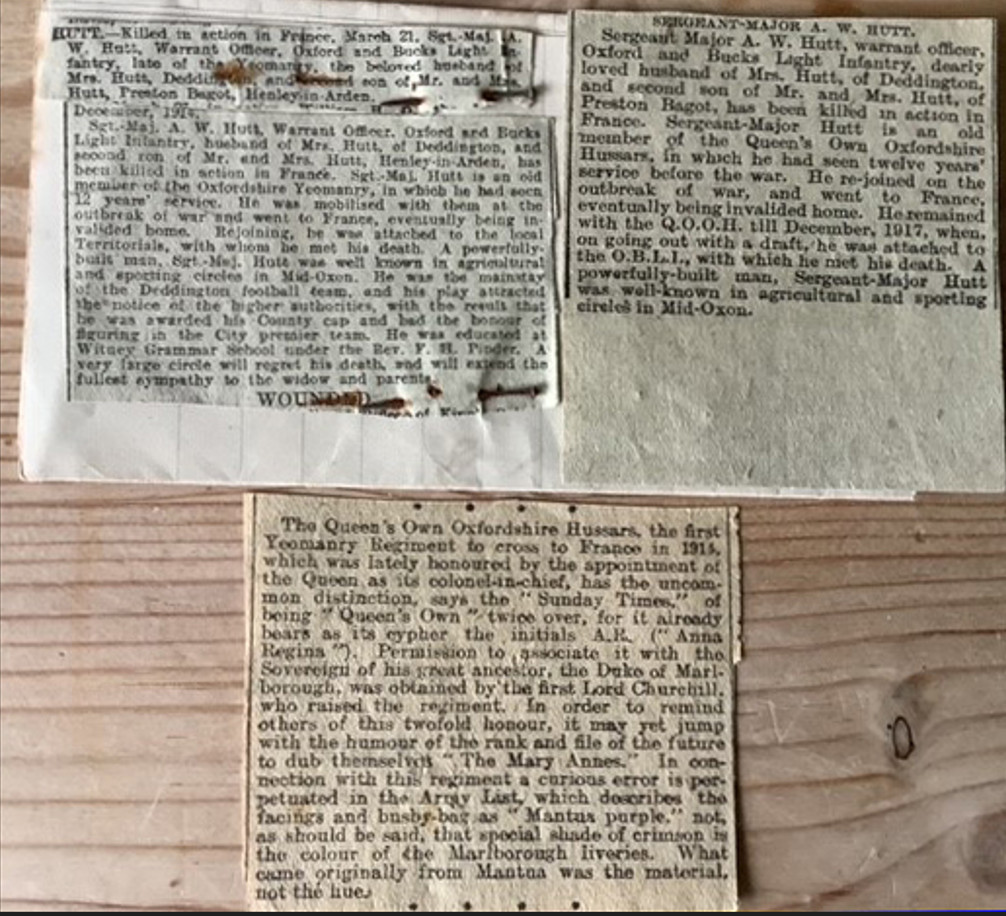 HUTT.—Killed in action in France, March 21, Sgt.-Maj. A.
W. Hutt, Warrant Officer, Oxford and Bucks Light In-
fantry, late of the Yeomanry, the beloved husband of
Mrs. Hutt, Deddington, and second son of Mr. and Mrs.
Hutt, Preston Bagot, Henley-in-Arden.
December,
Sgt.-Maj. A. W. Hutt, Warrant Officer, Oxford and Bucks
Light Infantry, husband of Mrs. Hutt, of Deddington, and
second son of Mr. and Mrs. Hutt, Henley-in-Arden, has
been killed in action in France. Sgt.-Maj. Hutt is an old
member of the Oxfordshire Yeomanry, in which he had seen
12 years' service. He was mobilised with them at the
outbreak of war and went to France, eventually being in-
valided home. Rejoining, he was attached to the local
Territorials, with whom he met his death. A powerfully-
built man, Sgt.-Maj. Hutt was well known in agricultural
and sporting circles in Mid-Oxon. He was the mainstay
of the Deddington football team, and his play attracted
the notice of the higher authorities, with the result that
he was awarded his County cap and had the honour of
figuring in the City premier team. He was educated at
Witney Grammar School under the Rev. F. H. Pinder. A
very large circle will regret his death, and will extend the
fullest sympathy to the widow and parents.
WOUNDED
SERGEANT-MAJOR A. W. HUTT.
Sergeant Major A. W. Hutt, warrant officer,
Oxford and Bucks Light Infantry, dearly
loved husband of Mrs. Hutt, of Deddington,
and second son of Mr. and Mrs. Hutt, of
Preston Bagot, has been killed in action in
France. Sergeant-Major Hutt is an old
member of the Queen's Own Oxfordshire
Hussars, in which he had seen twelve years'
service before the war. He re-joined on the
outbreak of war, and went to France,
eventually being invalided home. He remained
with the Q.O.O.H. till December, 1917, when,
on going out with a draft, he was attached to
the O.B.L.I., with which he met his death. A
powerfully-built man, Sergeant-Major Hutt
was well-known in agricultural and sporting
circles in Mid-Oxon.
The Queen's Own Oxfordshire Hussars, the first
Yeomanry Regiment to cross to France in
which was lately honoured by the appointment of
the Queen as its colonel-in-chief, has the uncom-
mon distinction, says the "Sunday Times," of
being "Queen's Own" twice over, for it already
bears as its cypher the initials A.R. ("Anna
Regina"). Permission to associate it with the
Sovereign of his great ancestor, the Duke of Marl-
borough, was obtained by the first Lord Churchill,
who raised the regiment. In order to remind
others of this twofold honour, it may yet jump
with the humour of the rank and file of the future
to dub themselves "The Mary Annes." In con-
nection with this regiment a curious error is per-
petuated in the Army List, which describes the
facings and busby-bag as "Mantua purple," not,
as should be said, that special shade of crimson is
the colour of the Marlborough liveries. What
came originally from Mantua was the material,
not the hue.